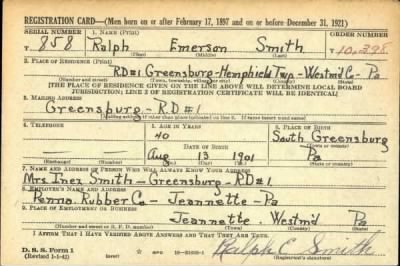 REGISTRATION CARD—(Men born on or after February 17, 1897 and on or before December 31, 1921)
SERIAL NUMBER 1. NAME (Print) ORDER NUMBER
T 858 Ralph Emerson Smith T 10,398
(First) (Middle) (Last)
2. PLACE OF RESIDENCE (Print)
RD#1 Greensburg-Hempfield Twp - Westm'l Co - Pa
(Number and street) (Town, township, village, or city) (County) (State)
[THE PLACE OF RESIDENCE GIVEN ON THE LINE ABOVE WILL DETERMINE LOCAL BOARD
JURISDICTION; LINE 2 OF REGISTRATION CERTIFICATE WILL BE IDENTICAL]
3. MAILING ADDRESS
Greensburg - R.D #1
[Mailing address if other than place indicated on line 2. If same insert word same]
4. TELEPHONE 5. AGE IN YEARS 6. PLACE OF BIRTH
40 South Greensburg
DATE OF BIRTH (Town or county)
Aug 13 1901 Pa
(Exchange) (Number) (Mo.) (Day) (Yr.) (State or country)
7. NAME AND ADDRESS OF PERSON WHO WILL ALWAYS KNOW YOUR ADDRESS
Mrs Inez Smith - Greensburg - RD#1
8. EMPLOYER'S NAME AND ADDRESS
Penna Rubber Co - Jeannette - Pa
9. PLACE OF EMPLOYMENT OR BUSINESS
Jeannette Westm'l Pa
(Number and street or R. F. D. number) (Town) (County) (State)
I AFFIRM THAT I HAVE VERIFIED ABOVE ANSWERS AND THAT THEY ARE TRUE.
D. S. S. Form 1
(Revised 1-1-42) (over)
Ralph E Smith
(Registrant's signature)